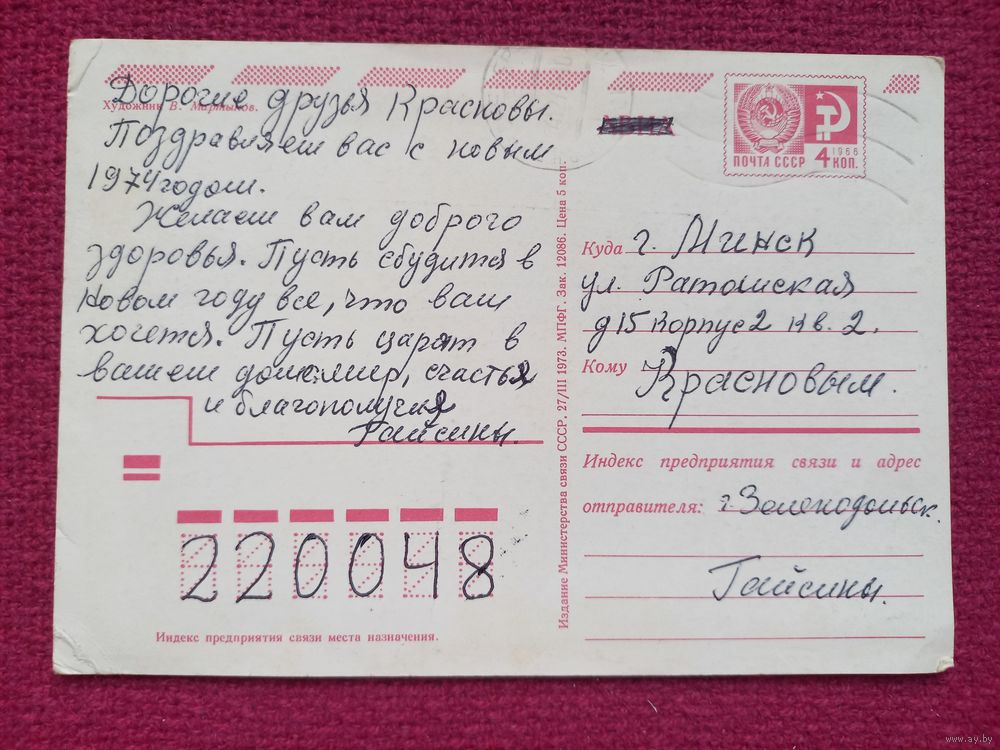 Дорогие друзья Красновы.
Художник В. Мартынов.
Поздравляем вас с новым
1974 годом.
Желаем вам доброго
здоровья. Пусть сбудится в
новом году все, что вам
хочется. Пусть царят в
вашем доме мир, счастья
и благополучия
Гайсины.
220048
Индекс предприятия связи места назначения.
Издание Министерства связи СССР. 27/III 1973. МПФГ. Зак. 12086. Цена 5 коп.
АВИА
ПОЧТА СССР
1966
4 КОП.
Куда г. Минск
ул. Ратомская
д 15 Корпус 2 кв. 2.
Кому Красновым.
Индекс предприятия связи и адрес
отправителя: г. Зеленодольск.
Гайсины.
www.ay.by